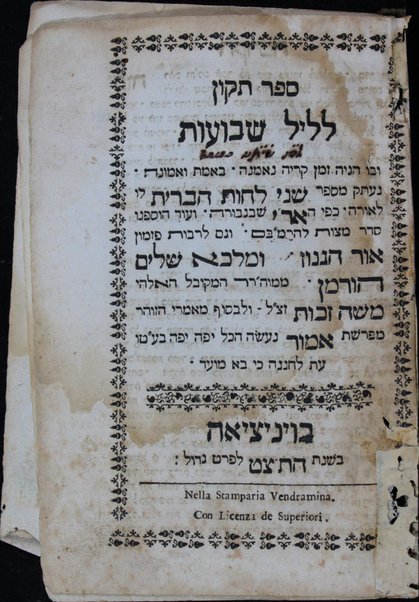 ספר תקון
לליל שבועות
ובו חניה זמן קריה נאמנה · באמת ואמונה ·
נעתק מספר שני לחות הברית לי
לאורה · כפי האר״י שבגבורה · ועוד הוספנו
סדר מצות להרמב״ם · וגם לרבות פזמון
אור הגנוז ומלכא שלים
הורמן ממוה״רר המקובל האלהי
משה זכות זצ״ל · ולבסוף מאמרי הזוהר
מפרשת אמור נעשה הכל יפה יפה בע״טו
עת לחננה כי בא מועד ·
בויניציאה
בשנת הת״צט לפרט גדול :
Nella Stamparia Vendramina.
Con Licenza de Superiori.